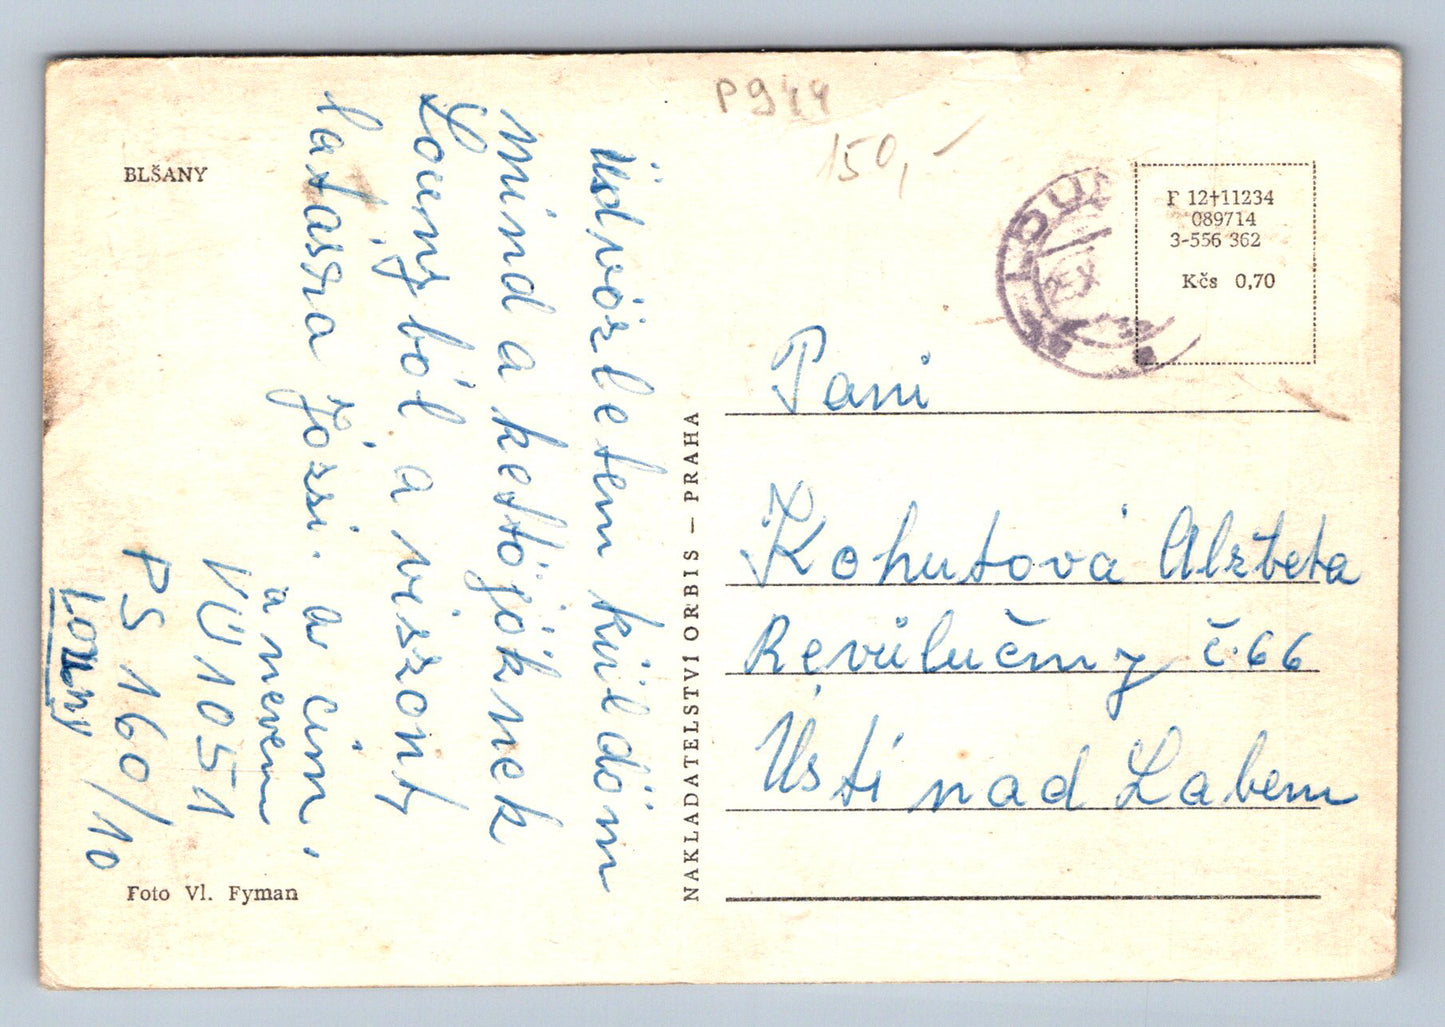 P944
150,-
BLŠANY
LOUN
25.X
F 12†11234
089714
3-556 362
Kčs 0,70
Üdvözletem küldöm
mind a kettőjöknek
Lounyból a viszont
latassra Józsi. a cim,
a nevem
VÚ 1051
PS 160/10
Louny
Foto Vl. Fyman
NAKLADATELSTVÍ ORBIS — PRAHA
Pani
Kohutová Alžbeta
Revůlučny č.66
Ústí nad Labem